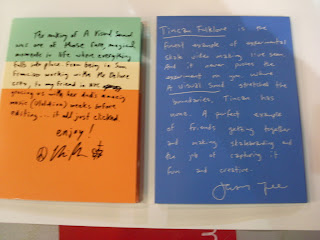 The making of A Visual Sound
was one of those rare, magical
moments in life where everything
falls into place. From being in San
Francisco working with
to my friend in NYC
with her dad's amazing
music (Vladislav) weeks before
editing.... it all just clicked.
enjoy!
Folklore is the
finest example of experimental
skate video making I've seen.
And it never passes the
experiment on you. Where
A Visual Sound stretched the
boundaries, has
none. A perfect example
of friends getting together
and making skateboarding and
the job of capturing it
fun and creative.